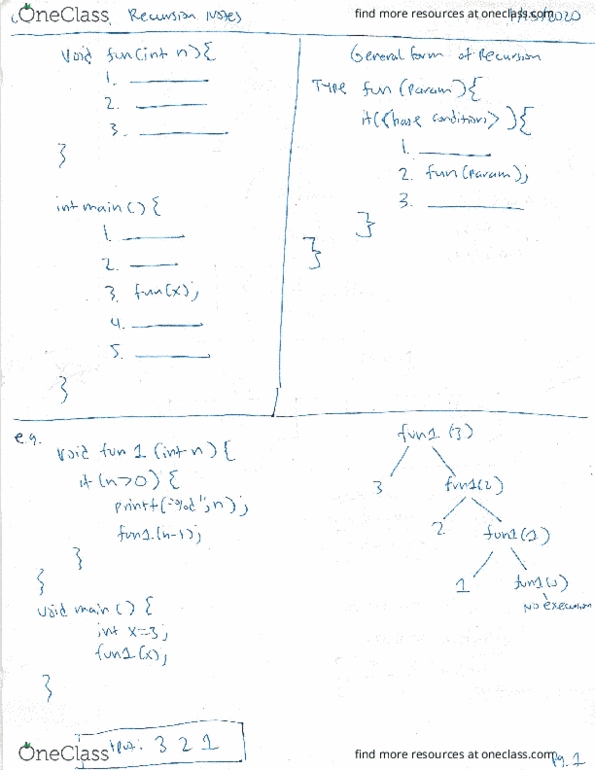 OneClass
Recursion Notes
find more resources at oneclass.com
2020
void fun(int n) {
1.
2.
3.
}
int main() {
1.
2.
3. fun(x);
4.
5.
}
General form of Recursion
Type fun (param) {
if (<base condition>) {
1.
2. fun(param);
3.
}
}
e.g.
void fun1 (int n) {
if (n>0) {
printf("%d", n);
fun1.(n-1);
}
}
void main () {
int x=3;
fun1(x);
}
fun1 (3)
3 fun1(2)
2 fun1(1)
1 fun1(0)
No execution
3 2 1
OneClass
find more resources at oneclass.com
pg. 1